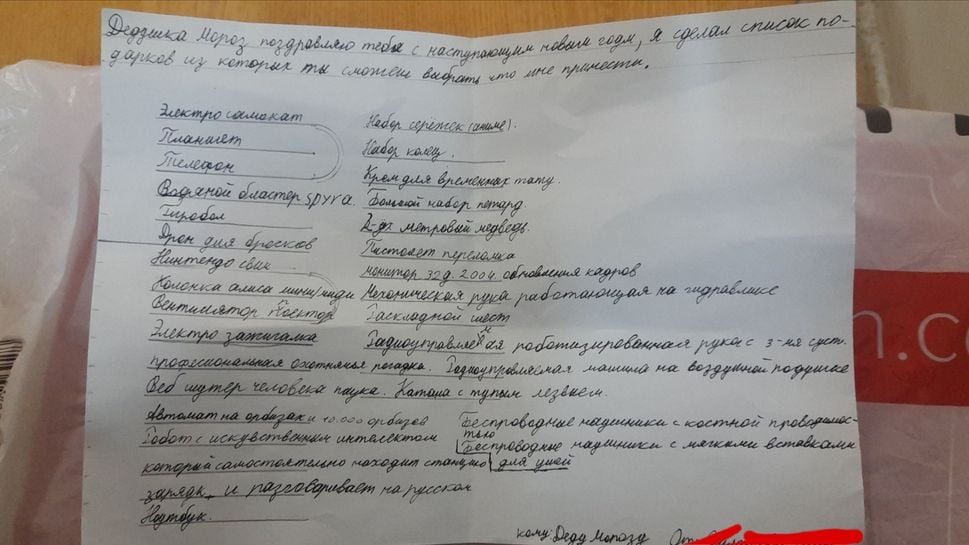 Дедушка Мороз поздравляю тебя с наступающим новым годм, я сделал список по-
дарков из которых ты сможеш выбрать что мне принести.
Электро самокат
Планшет
Телефон
Водяной бластер spyra.
Гиробол
Дрон для бросков
Нинтендо свич
Колонка алиса мини/миди
Вентилятор Проектор
Электро зажигалка
Набор серёжек (аниме).
Набор колец.
Кром для временных тату.
Большой набор петард.
2-ух метровый медведь.
Пистолет переломка
монитор 32д. 200гц. обновления кадров
Механическая рука работающая на гидравлике
Раскладной шест
Радиоуправляемая роботизированная рука с 3-мя суст.
професиональная охотничья рогадка. Радиоуправляемая машина на воздушной подушке
Веб шутер человека паука. Катана с тупым лезвием.
Автомат на орбизах и 10.000 орбизов
Робот с искуственным интелектом
который самостоятельно находит станцию
зарядк, и разговаривает на русском
Ноутбук.
Беспроводные наушники с костной проводимос-
тью
Беспроводные наушники с мягкими вставками
для ушей
кому: Деду Морозу От:
n.c